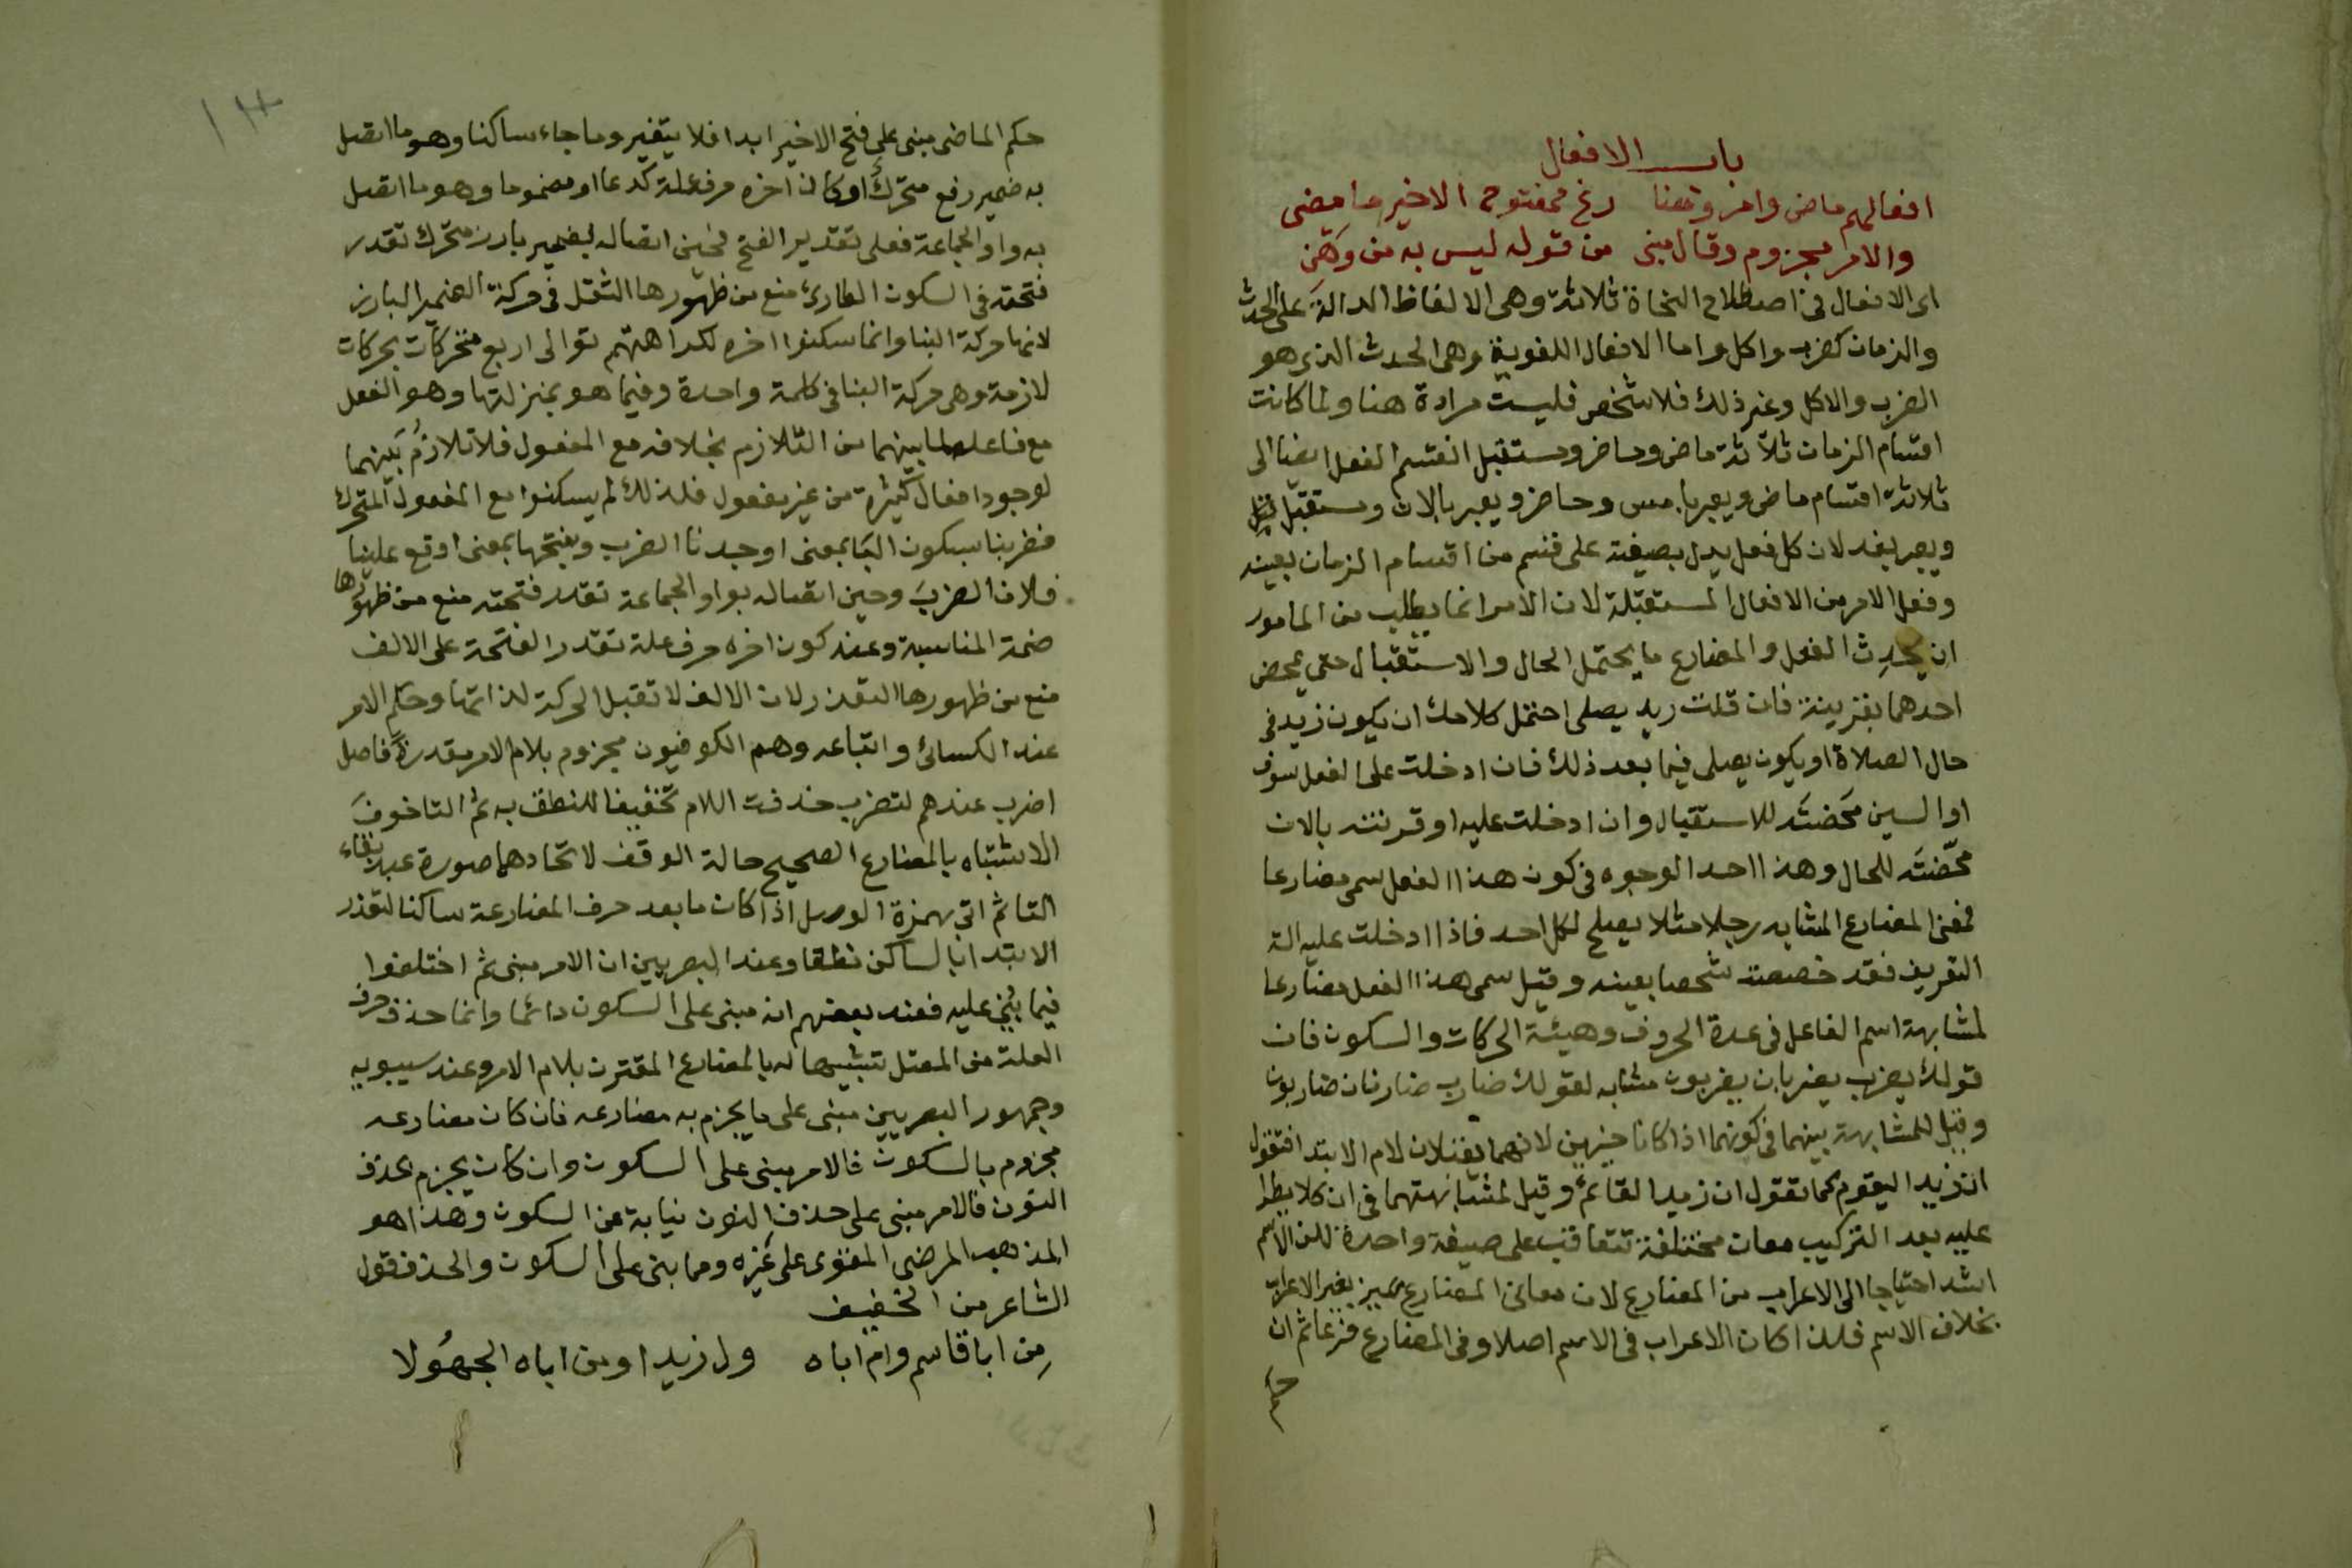 باب الافعال
افعالهم ماض وامر وضعنا رع ممفتوح الاخير ما مضى
والامر مجزوم وقال مبنى من قوله ليس به من وهن
اى الافعال فى اصطلاح النحاة ثلاثة وهى الالفاظ الدالة على الحدث
والزمان كضرب واكل واما الافعال اللغوية وهى الحدث الذى هو
الضرب والاكل وغير ذلك فلا شخص فليست مرادة هنا ولما كانت
اقسام الزمان ثلاثة ماض وحاضر ومستقبل انقسم الفعل ايضا الى
ثلاثة اقسام ماض ويعبر بامس وحاضر ويعبر بالان ومستقبل
ويعبر بغد لان كل فعل يدل بصيغته على قسم من اقسام الزمان بعينه
وفعل الامر من الافعال المستقبلة لان الامر انما يطلب من المامور
ان يحدث الفعل والمضارع ما يحتمل الحال والاستقبال حتى يمحض
احدهما بقرينة فان قلت زيد يصلى احتمل كلامك ان يكون زيد فى
حال الصلاة او يكون يصلى فيما بعد ذلك فان ادخلت على الفعل سوف
او السين محضته للاستقبال وان ادخلت عليه او قرنته بالان
محضته للحال وهذا احد الوجوه فى كون هذا الفعل سمى مضارعا
فمعنى المضارع المشابه رجلا مثلا يصلح لكل احد فاذا ادخلت عليه الة
التعريف فقد خصصت شخصا بعينه وقيل سمى هذا الفعل مضارعا
لمشابهة اسم الفاعل فى عدة الحروف وهيئة الحركات والسكون فان
قولك يضرب يضربان يضربون مشابه لقولك ضارب ضاربان ضاربون
وقيل للمشابهة بينهما فى كونهما اذا كانا خبرين لانهما يقبلان لام الابتدا فتقول
ان زيدا ليقوم كما تقول ان زيدا لقائم وقيل لمشابهتهما فى ان كلا يطرا
عليه بعد التركيب معان مختلفة تتعاقب على صيغة واحدة لكن الاسم
اشد احتياجا الى الاعراب من المضارع لان معانى المضارع تميز بغير الاعراب
بخلاف الاسم فلذا كان الاعراب فى الاسم اصلا وفى المضارع فرعا ثم ان
حكم
حكم الماضى مبنى على فتح الاخير ابدا فلا يتغير وما جاء ساكنا وهو ما اتصل
به ضمير رفع متحرك او كان اخره حرف علة كدعا او مضموما وهو ما اتصل
به واو الجماعة فعلى تقدير الفتح فحين اتصاله بضمير بارز متحرك تقدر
فتحته فى السكون الطارئ منع من ظهورها الثقل فى حركة الضمير البارز
لانها حركة البنا وانما سكنوا اخره لكراهتهم توالى اربع متحركات بحركات
لازمة وهى حركة البنا فى كلمة واحدة وفيما هو بمنزلتها وهو الفعل
مع فاعله لما بينهما من التلازم بخلافه مع المفعول فلا تلازم بينهما
لوجود افعال كثيرة من غير مفعول فلذلك لم يسكنوا مع المفعول المتحرك
فضربنا بسكون البا بمعنى اوجدنا الضرب وبفتحها بمعنى اوقع علينا
فلان الضرب وحين اتصاله بواو الجماعة تقدر فتحته منع من ظهورها
ضمة المناسبة وعند كون اخره حرف علة تقدر الفتحة على الالف
منع من ظهورها التعذر لان الالف لا تقبل الحركة لذاتها وحكم الامر
عند الكسائى واتباعه وهم الكوفيون مجزوم بلام الامر مقدرة فاصل
اضرب عندهم لتضرب حذفت اللام تخفيفا للنطق به ثم التا خوف
الاشتباه بالمضارع الصحيح حالة الوقف لاتحادهما صورة عند بقاء
التا ثم اتى بهمزة الوصل اذا كان ما بعد حرف المضارعة ساكنا لتعذر
الابتدا بالساكن نطقا وعند البصريين ان الامر مبنى ثم اختلفوا
فيما بنى عليه فعند بعضهم انه مبنى على السكون دائما وانما حذف حرف
العلة من المعتل تشبيها له بالمضارع المقترن بلام الامر وعند سيبويه
وجمهور البصريين مبنى على ما يجزم به مضارعه فان كان مضارعه
مجزوم بالسكون فالامر مبنى على السكون وان كان يجزم بحذف
النون فالامر مبنى على حذف النون نيابة عن السكون وهذا هو
المذهب المرضى المقوى على غيره ومما بنى على السكون والحذف قول
الشاعر من الخفيف
من ابا قاسم وام اباه ول زيدا ومن اباه الجهولا